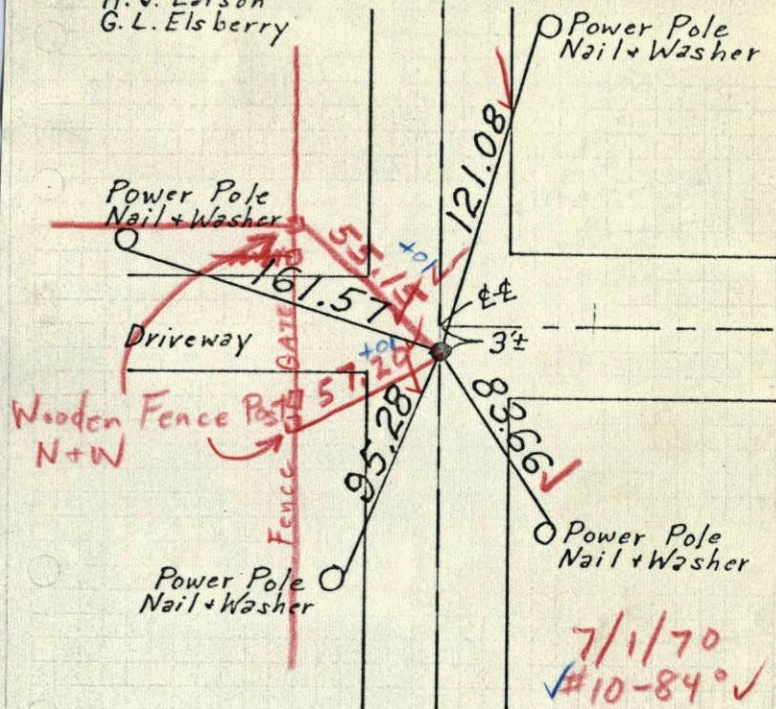 G. L. Elsberry
Power Pole
Nail + Washer
121.08
Power Pole
Nail + Washer
55.15
+01
161.57
℄℄
3'±
Driveway
GATE
+01
57.20
83.66
Wooden Fence Post
N+W
95.28
Fence
Power Pole
Nail + Washer
Power Pole
Nail + Washer
7/1/70
#10-84°